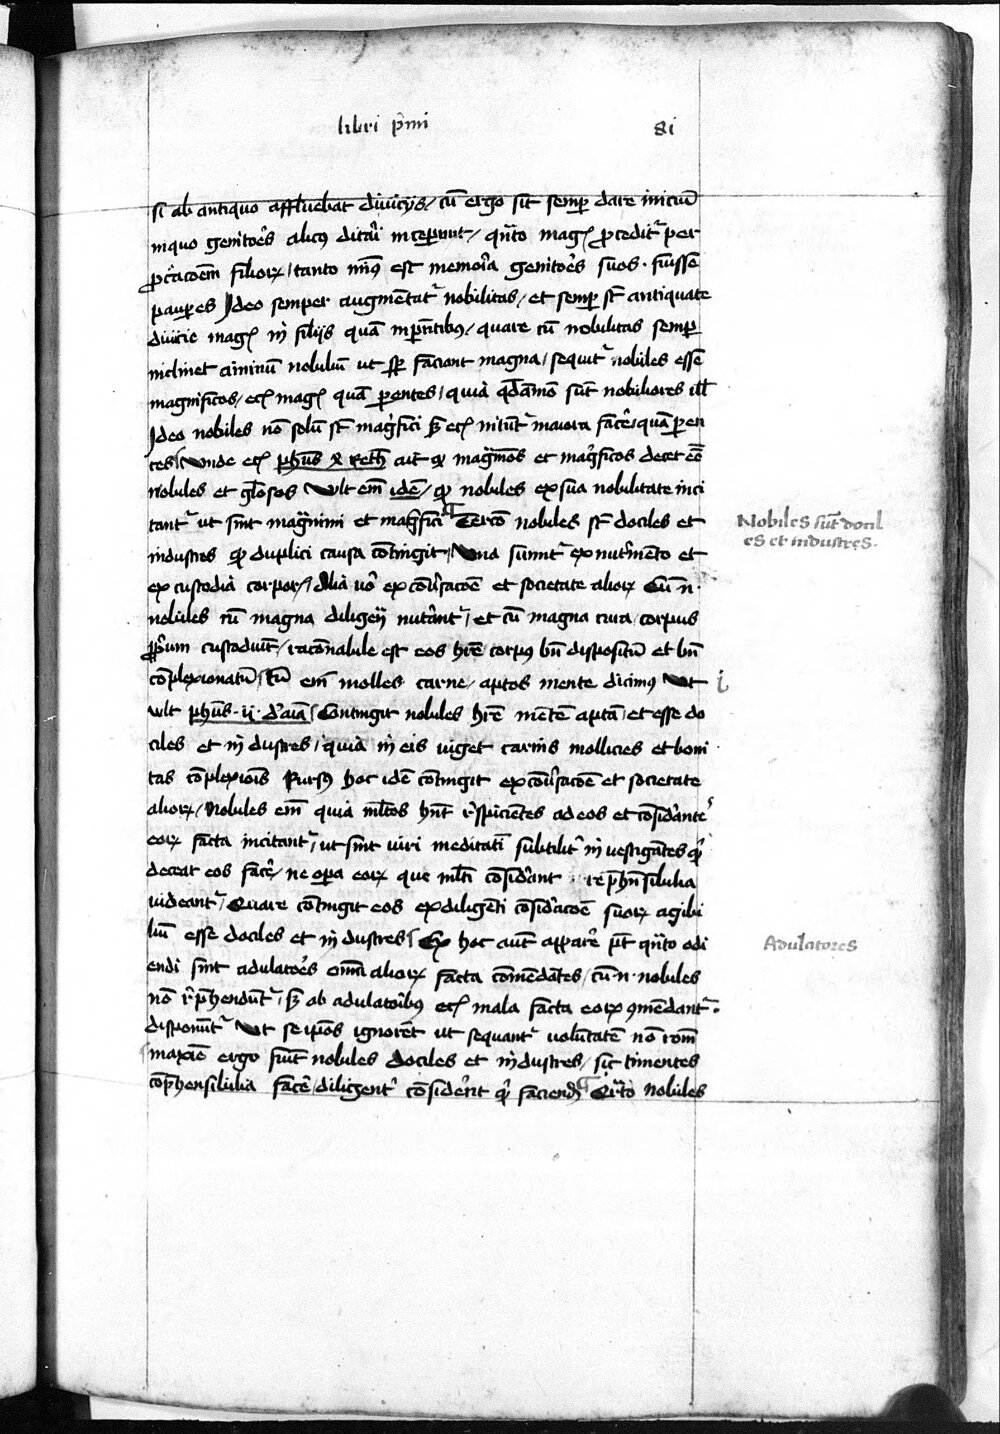 libri p̄mi 81
si ab antiquo affluebat diuicijs / cū ergo sit semp dare iniciū
inquo genitoēs alicꝰ ditari inceperunt / qn̄to magꝭ ꝓcedit᷑ per
ꝓcreacoēm filioꝝ / tanto minꝰ est memoria genitoēs suos fuisse
pauperes Ideo semper augmētat᷑ nobilitas / et semp sūt antiquate
diuicie magꝭ in filijs quā in parētibus / quare cū nobilitas semp
inclinet animū nobiliū ut semp faciant magna / sequit᷑ nobiles esse
magnificos / ecꝭ magꝭ quā parentes / quia quodāmo sūt nobiliores illis
Ideo nobiles nō solū sūt magfici sꝫ ecꝭ nitūt᷑ maiora facē quā paren
tes / Unde ecꝭ ph̄us ꝝ Reth ait ꝙ magn̄imos et magficos decet eē
nobiles et glōsos Vlt em̄ idē / ꝙ nobiles ex sua nobilitate inci
tant᷑ ut sint magn̄imi et magfici Tercō nobiles sūt dociles et
industres ꝙ duplici causa cōtingit / Vna sumit᷑ ex nutrimēto et
ex custodia corporꝭ / Alia uō ex cōuersacoē et societate alioꝝ Cū .n.
nobiles cū magna diligen nutriant᷑ / et cū magna cura / corpus
ꝓprium custodiūt / racōnabile est eos hr̄e corpus bn̄ dispositū et bn̄
cōplexionatū / Cū em̄ molles carne / aptos mente dicimꝰ Vt
vlt ph̄us .ii. d'aīa / Contingit nobiles hr̄e mētē aptā / et esse do
ciles et industres / quia in eis viget carnis mollicies et boni
tas cōplexiois Rursꝰ hoc idē cōtingit ex cōuersacoē et societate
alioꝝ / Nobiles em̄ quia ml̄tos hn̄t respicientes ad eos et cōsiderantes
eoꝝ facta incitant᷑ / ut sint uiri meditati subtilit᷑ inuestigātes qd
deceat eos facē / ne opa eoꝝ que ml̄ti cōsiderant rep̄hn̄sibilia
uideant᷑ / Quare cōtingit eos ex diligēti cōsideracoē suoꝝ agibi
liū esse dociles et industres / Ex hoc aut̄ apparē pt̄ qn̄to odi
endi sint adulatoēs om̄ alioꝝ facta cōmēdātes / cū .n. nobiles
nō rep̄hendūt᷑ / sꝫ ab adulatoribus ecꝭ mala facta eoꝝ ꝯmēdant᷑
disponūt᷑ Vt se ip̄os ignorēt ut sequant᷑ volūtatē nō rōem
maxīe ergo fiūt nobiles dociles et industres / sic timentes
cōp̄hensibilia facē / diligent᷑ cōsiderēt qd faciendū Qr̄to nobiles
Nobiles sūt docil
es et industres.
Adulatores